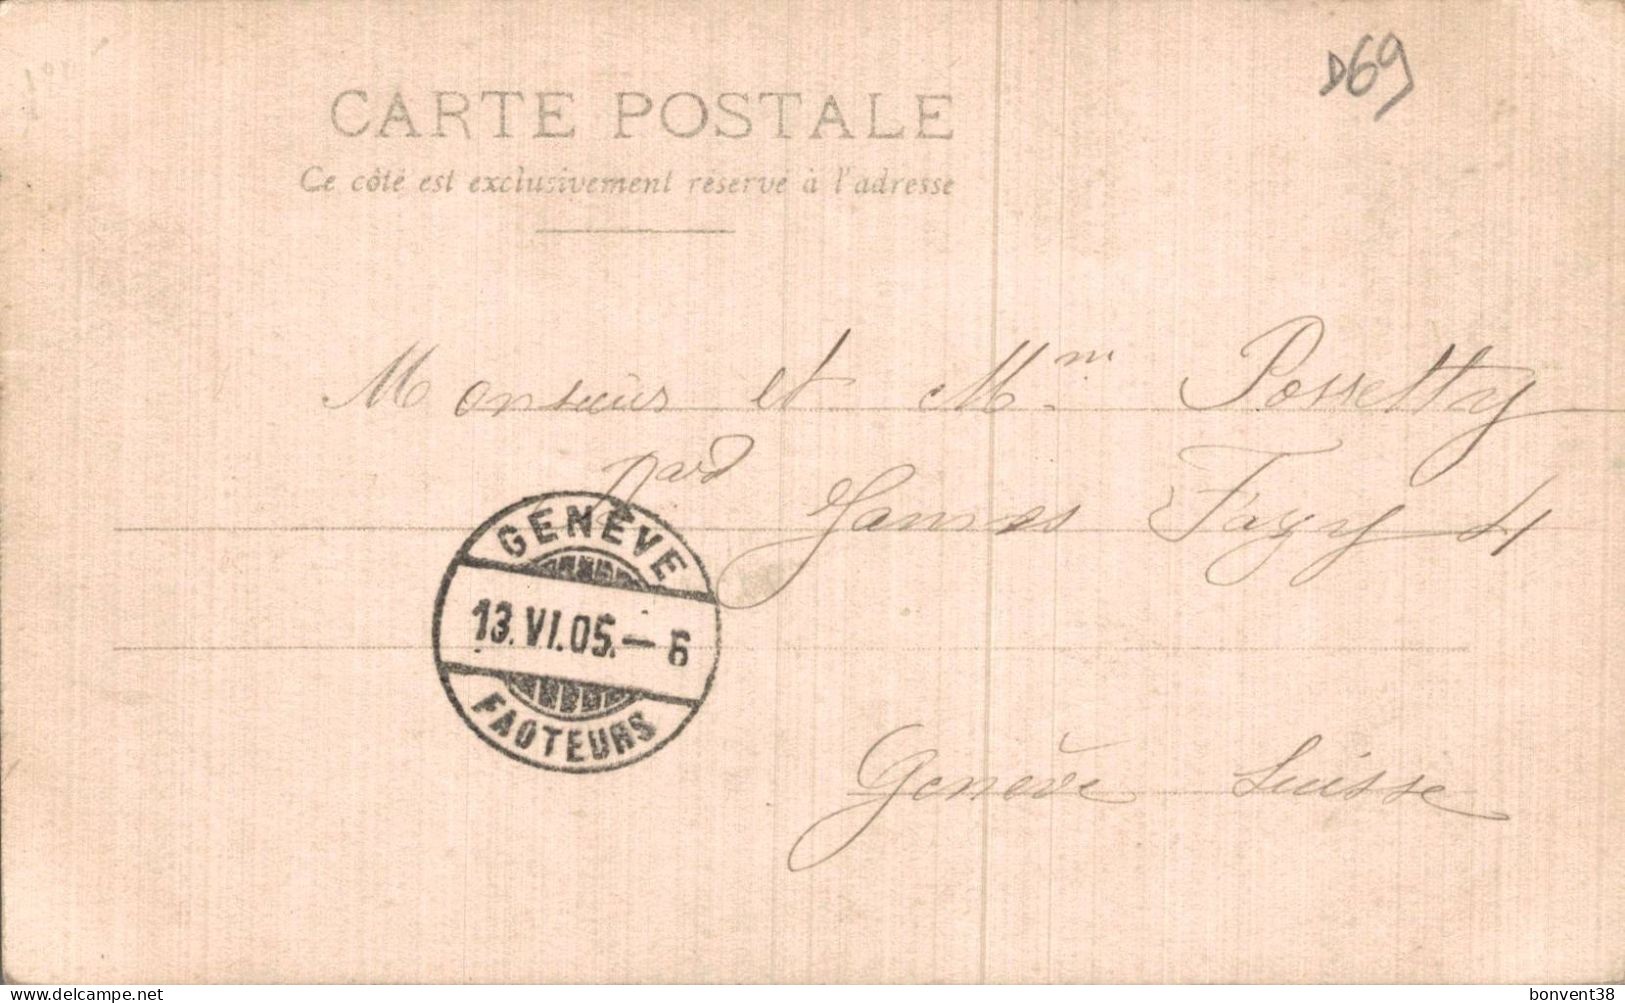 D69
CARTE POSTALE
Ce côté est exclusivement réservé à l'adresse
Monsieur et Mm. Possetty
Bard James Fazy 4
GENÈVE
13.VI.05.—6
FACTEURS
Genève Suisse
delcampe.net
bonvent38